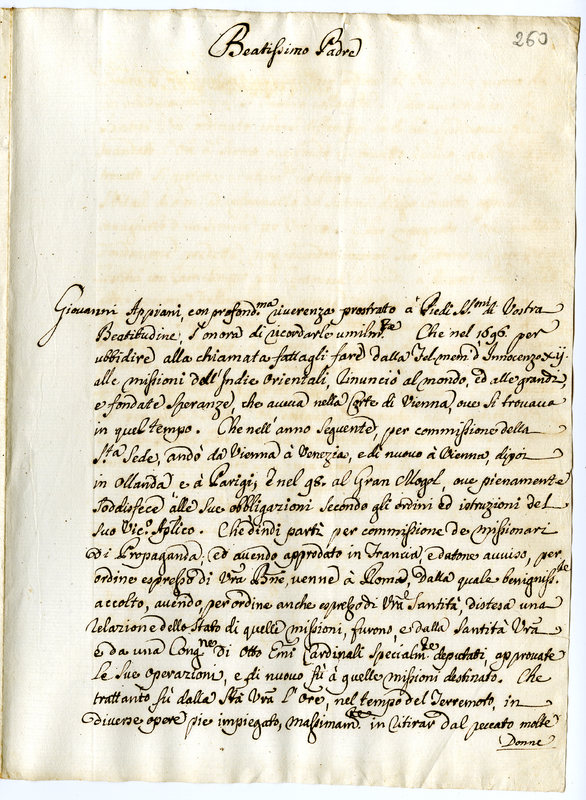 260
Beatissimo Padre
Giovanni Appiani, con profond.ma riverenza prostrato à Piedi S.mi di Vostra
Beatitudine, s'onora di ricordarle umilm.te Che nel 1696 per
ubbidire alla chiamata fattagli fare dalla fel: mem: d'Innocenzo xij.
alle missioni dell'Indie Orientali, rinunciò al mondo, ed alle grandi,
e fondate speranze, che aveva nella Corte di Vienna, ove si trovava
in quel tempo. Che nell'anno seguente, per commissione della
S.ta Sede, andò da Vienna à Venezia, e di nuovo à Vienna, dipoi
in Ollanda e à Parigi; E nel 98. al Gran Mogol, ove pienamente
soddisfece alle sue obbligazioni secondo gli ordini ed istruzioni del
suo Vic.o Aplico. Che dindi partì per commissione de missionari
di Propaganda; ed avendo approdato in Francia e datone avviso, per
ordine espresso di Vra Bne, venne à Roma, dalla quale benigniss.te
accolto, avendo, per ordine anche espresso di Vra Santità, distesa una
relazione dello stato di quelle missioni, furono, e dalla Santità Vra
e da una Cong.ne di Otto Emi Cardinali specialm.te deputati, approvate
le sue operazioni, e di nuovo fù à quelle missioni destinato. Che
trattanto fù dalla Stà Vra l'Ore, nel tempo del Terremoto, in
diverse opere pie impiegato, massimam.te in ritirar dal peccato molte
Donne